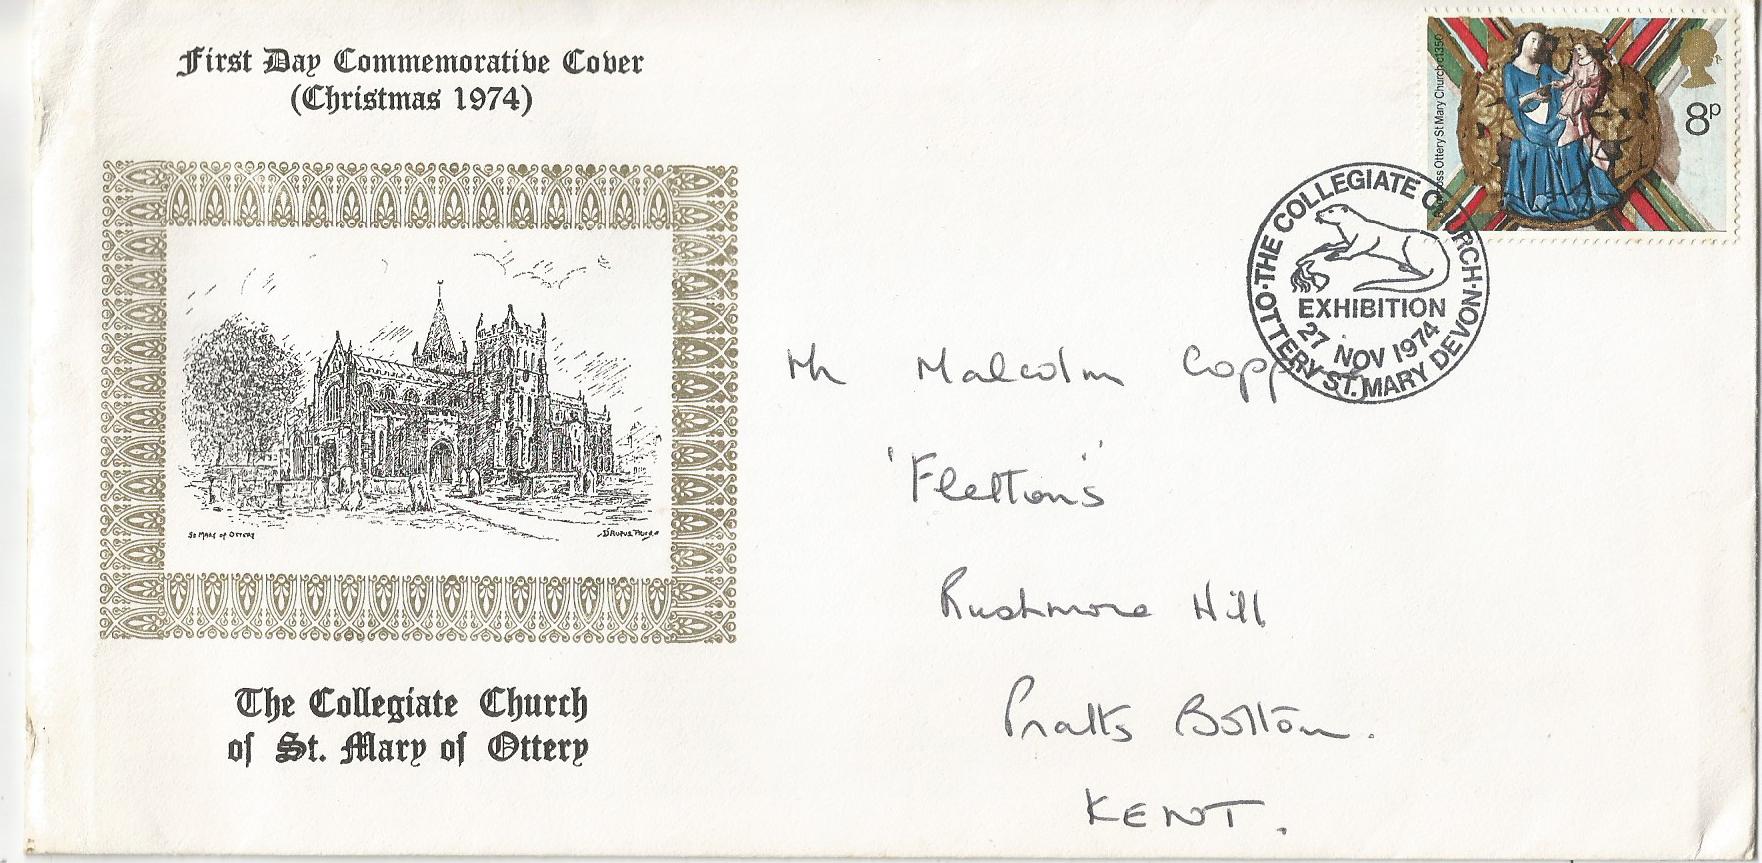 First Day Commemorative Cover
(Christmas 1974)
St Mary of Ottery
The Collegiate Church
of St. Mary of Ottery
Ottery St Mary Church c1350
8p
THE COLLEGIATE CHURCH
EXHIBITION
27 NOV 1974
OTTERY ST. MARY DEVON
Mr Malcolm
'Flettons'
Rushmore Hill
Pratts Bottom.
KENT.